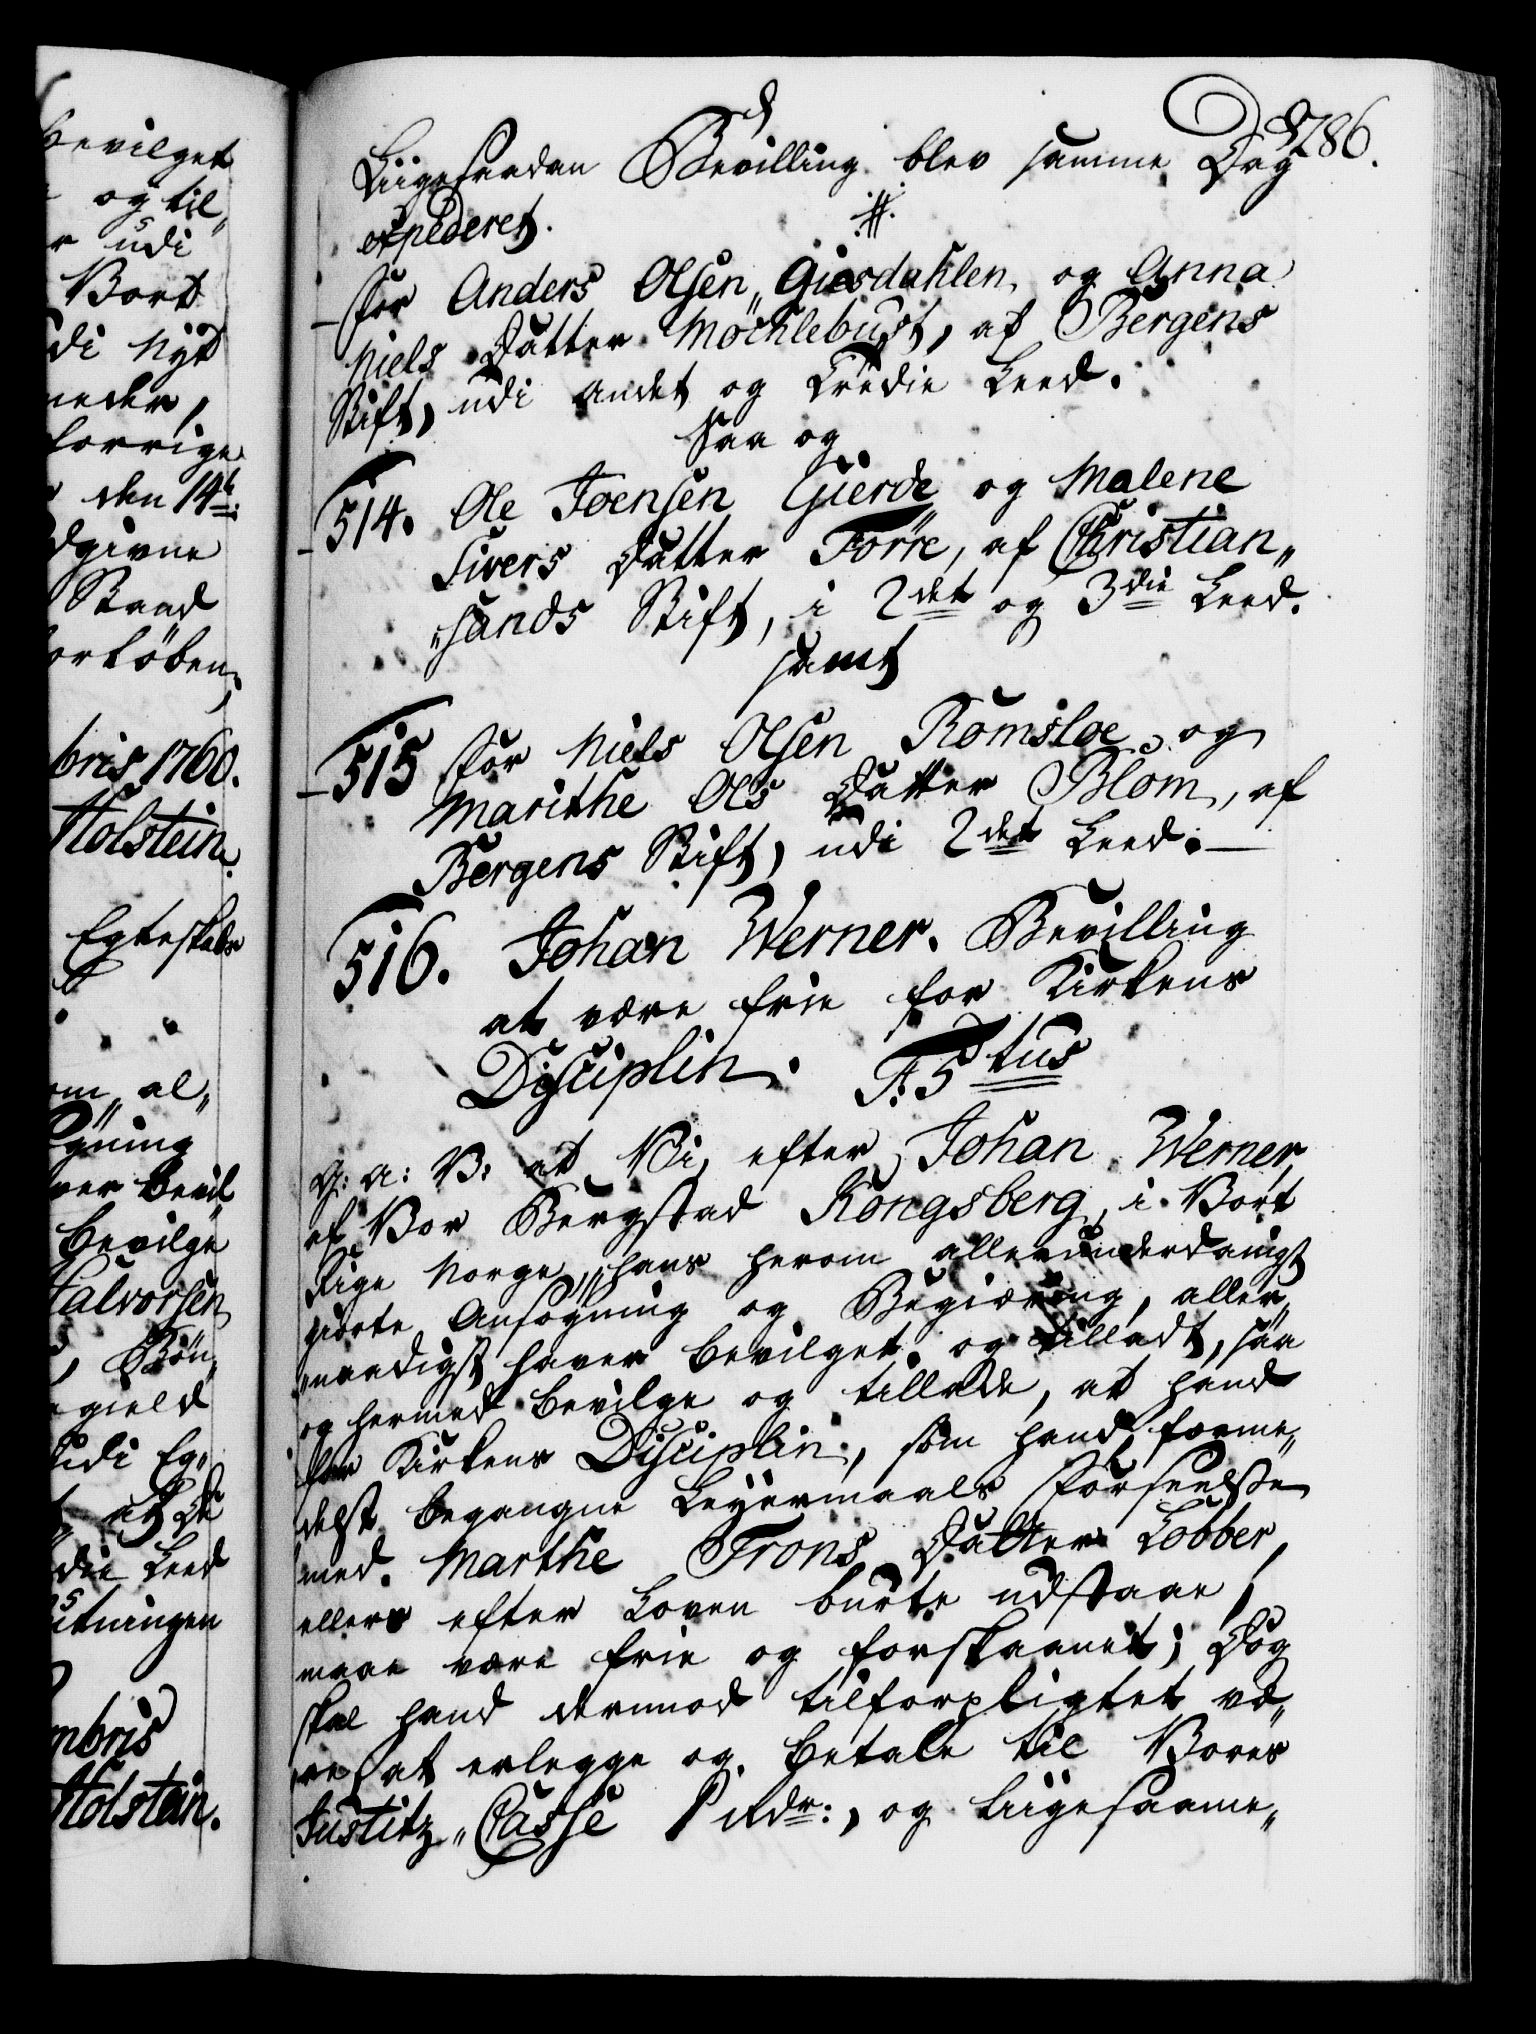 bevilget
og til„
udi
Vort
di Nyt
meder,
forrige
den 14de
dgivne
Stand
orköben,
bris 1760.
Holstein.
Egteskab
om al„
gning
ver bevil„
bevilge
Halvorsen
, Bön„
egield
udi Eg„
at De
die Leed
utningen
mbris
Holstein.
786.
Liigesaadan Bevilling blev samme Dag
expederet.
for Anders Olsen Giesdahlen og Anna
Niels Datter Möchlebust, af Bergens
Stift, udi andet og tredie Leed.
Saa og
514. Ole Joensen Gierde og Malene
Sivers Datter Torre, af Christian„
„sands Stift, i 2det og 3die Leed.
samt
515 for Niels Olsen Romsloe og
Marithe Ols Datter Blom, af
Bergens Stift, udi 2det Leed.
516. Johan Werner. Bevilling
at være frie for Kirkens
Disciplin. F: 5tus
G: A: V: at Vi, efter Johan Werner,
af Vor Bergstad Kongsberg, i Vort
Rige Norge, hans herom allerunderdanigst
giorte Ansøgning og Begiæring, aller„
„naadigst haver bevilget og tilladt, saa
og hermed bevilge og tillade, at hand
for Kirkens Disciplin, som hand forme„
delst begangne Leyermaals Forseelse
med Marthe Trons Datter Lobber,
ellers efter Loven burte udstaae,
maae være frie og forskaanet; Dog
skal hand dermod tilforpligtet væ„
re, at erlegge og betale til Vores
Justitz„Casse 1 Rdr:, og liigesaame„